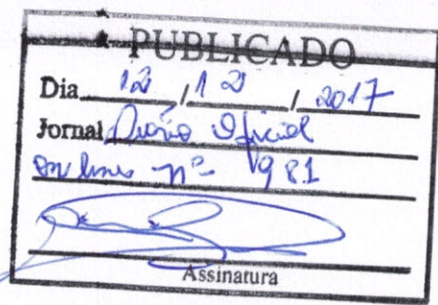 PUBLICADO
Dia 12 / 12 / 2017
Jornal Diário Oficial
on line nº 981
Assinatura